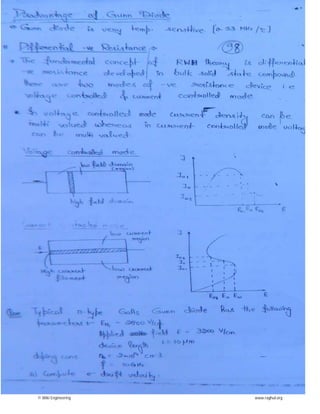 Disadvantage of Gunn Diode
Gunn diode is very temp. sensitive
Differential -ve Resistance
98
The fundamental concept of RWH theory is differential
-ve resistance developed in bulk solid state compound
there are two modes of -ve resistance device i.e
voltage controlled & current controlled mode
In voltage controlled mode current density can be
multi valued whereas in current controlled mode voltage
can be multi valued
Voltage controlled mode
low field domain
high field domain
J
E
low current
region
High current
filament
low current
region
J
E
Ques Typical n-type GaAs Gunn diode has the following
parameters
Applied field E = 3200 V/cm
device length L = 10 μm
doping conc
f = 10 GHz
a) Compute e- drift velocity
© BIBI Engineering
www.raghul.org